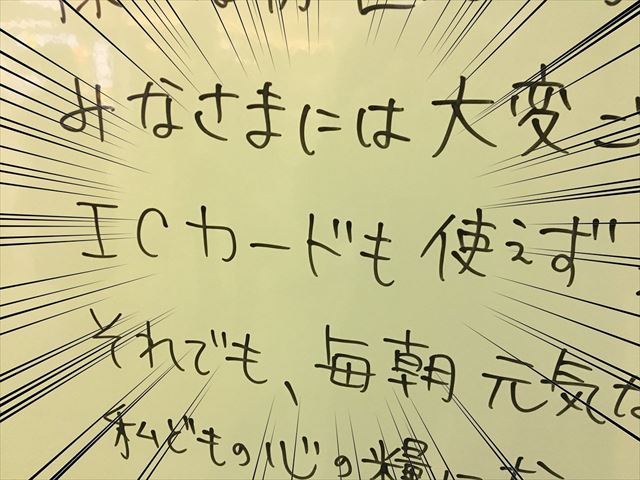 みなさまには大変ご
ICカードも使えず
それでも、毎朝元気な
私どもの心の糧になっ